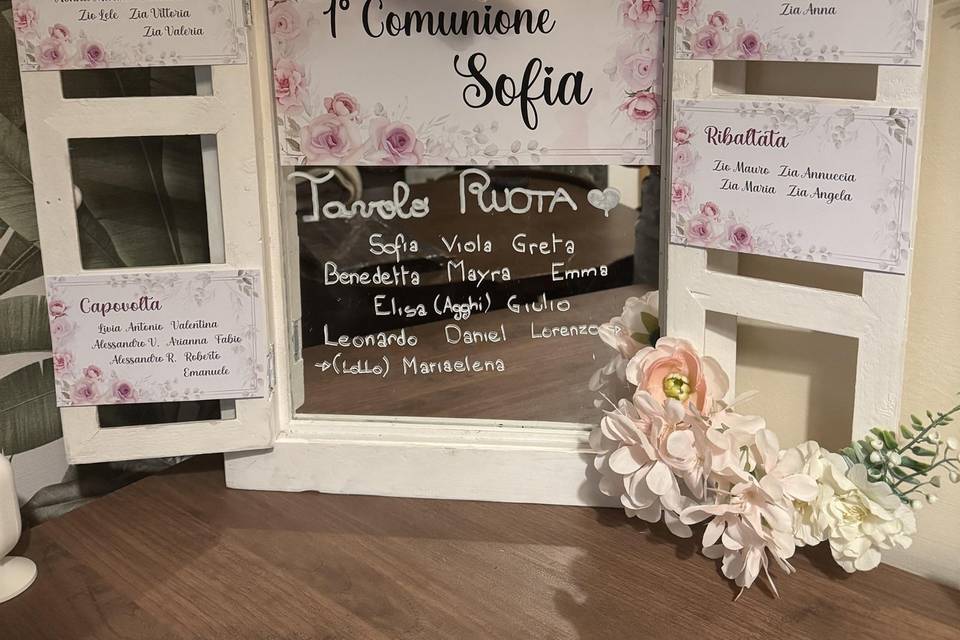 Zio Lele Zia Vittoria
Zia Valeria
Capovolta
Livia Antonio Valentina
Alessandro V. Arianna Fabio
Alessandro R. Roberto
Emanuele
1° Comunione
Sofia
Tavolo RUOTA
Sofia Viola Greta
Benedetta Mayra Emma
Elisa (Agghi) Giulio
Leonardo Daniel Lorenzo→
→(Lollo) Mariaelena
Zia Anna
Ribaltata
Zio Mauro Zia Annuccia
Zia Maria Zia Angela